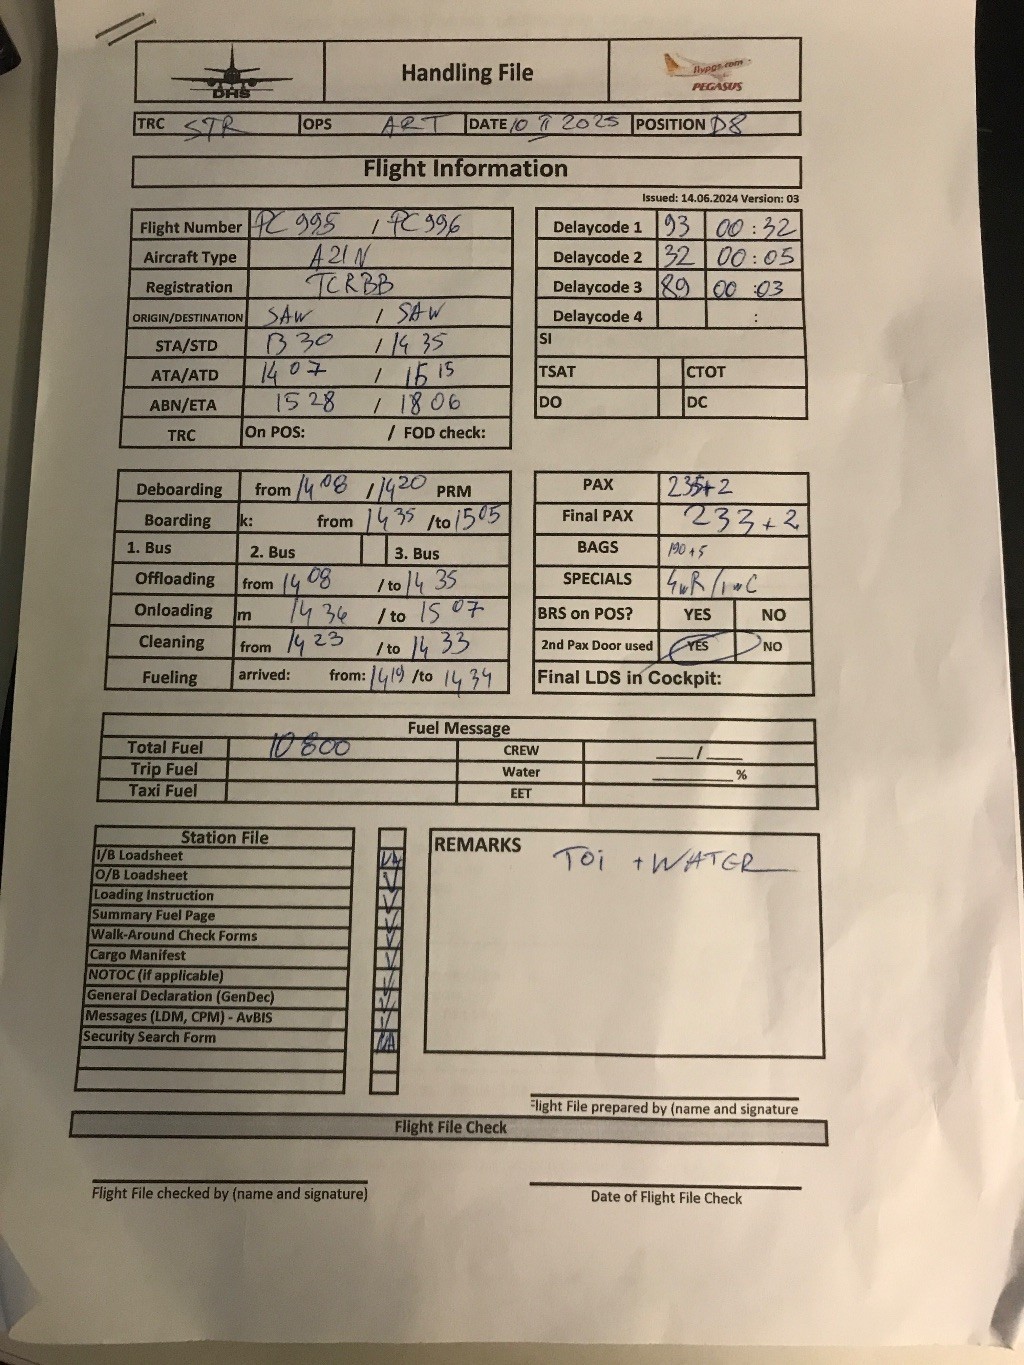 DHS
Handling File
flypgs.com
PEGASUS
TRC STR OPS ART DATE 10 II 2025 POSITION D8
Flight Information
Issued: 14.06.2024 Version: 03
Flight Number PC 995 / PC 996
Aircraft Type A21N
Registration TCRBB
ORIGIN/DESTINATION SAW / SAW
STA/STD 13 30 / 14 35
ATA/ATD 14 07 / 15 15
ABN/ETA 15 28 / 18 06
TRC On POS: / FOD check:
Delaycode 1 93 00:32
Delaycode 2 32 00:05
Delaycode 3 89 00:03
Delaycode 4 :
SI
TSAT CTOT
DO DC
Deboarding from 14 08 / 14 20 PRM
Boarding k: from 14 35 /to 15 05
1. Bus 2. Bus 3. Bus
Offloading from 14 08 / to 14 35
Onloading m 14 36 / to 15 07
Cleaning from 14 23 / to 14 33
Fueling arrived: from: 14 19 /to 14 34
PAX 235+2
Final PAX 233+2
BAGS 190+5
SPECIALS 4wR/1wC
BRS on POS? YES NO
2nd Pax Door used YES NO
Final LDS in Cockpit:
Fuel Message
Total Fuel 10800 CREW ____/____
Trip Fuel Water ________%
Taxi Fuel EET
Station File
I/B Loadsheet
O/B Loadsheet
Loading Instruction
Summary Fuel Page
Walk-Around Check Forms
Cargo Manifest
NOTOC (if applicable)
General Declaration (GenDec)
Messages (LDM, CPM) - AvBIS
Security Search Form NA
REMARKS TOi + WATER
Flight File prepared by (name and signature
Flight File Check
Flight File checked by (name and signature)
Date of Flight File Check